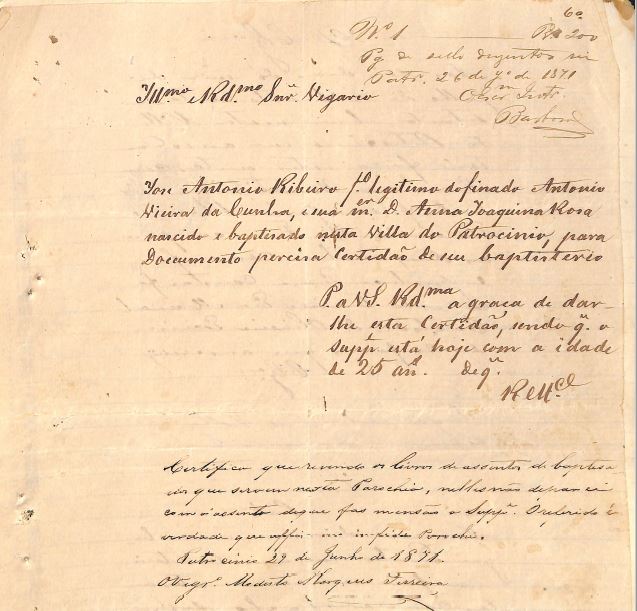 60
N.º 1 Rs 200
Pg de sello duzentos reis
Patr.º 26 de J.º de 1871
Barbosa
Ill.mo e Rd.mo Snr. Vigario
Jose Antonio Ribeiro f.º legitimo do finado Antonio
Vieira da Cunha, e sua m.er D. Anna Joaquina Rosa
nascido e baptisado nesta Villa do Patrocinio, para
Documento percisa Certidão de seu baptisterio
P. a V S. Rd.ma a graça de dar-
lhe esta Certidão, sendo q. o
Supp.e está hoje com a idade
de 25 an.s de q.
R M.ce
Certifico que revendo os livros de assentos de baptisa
dos que servem nesta Parochia, nelles não deparei
com o assento de que fas mensão o Supp.e O referido é
verdade que
Patrocinio 29 de Junho de 1871.
O Vigr.º Modesto Marques Ferreira